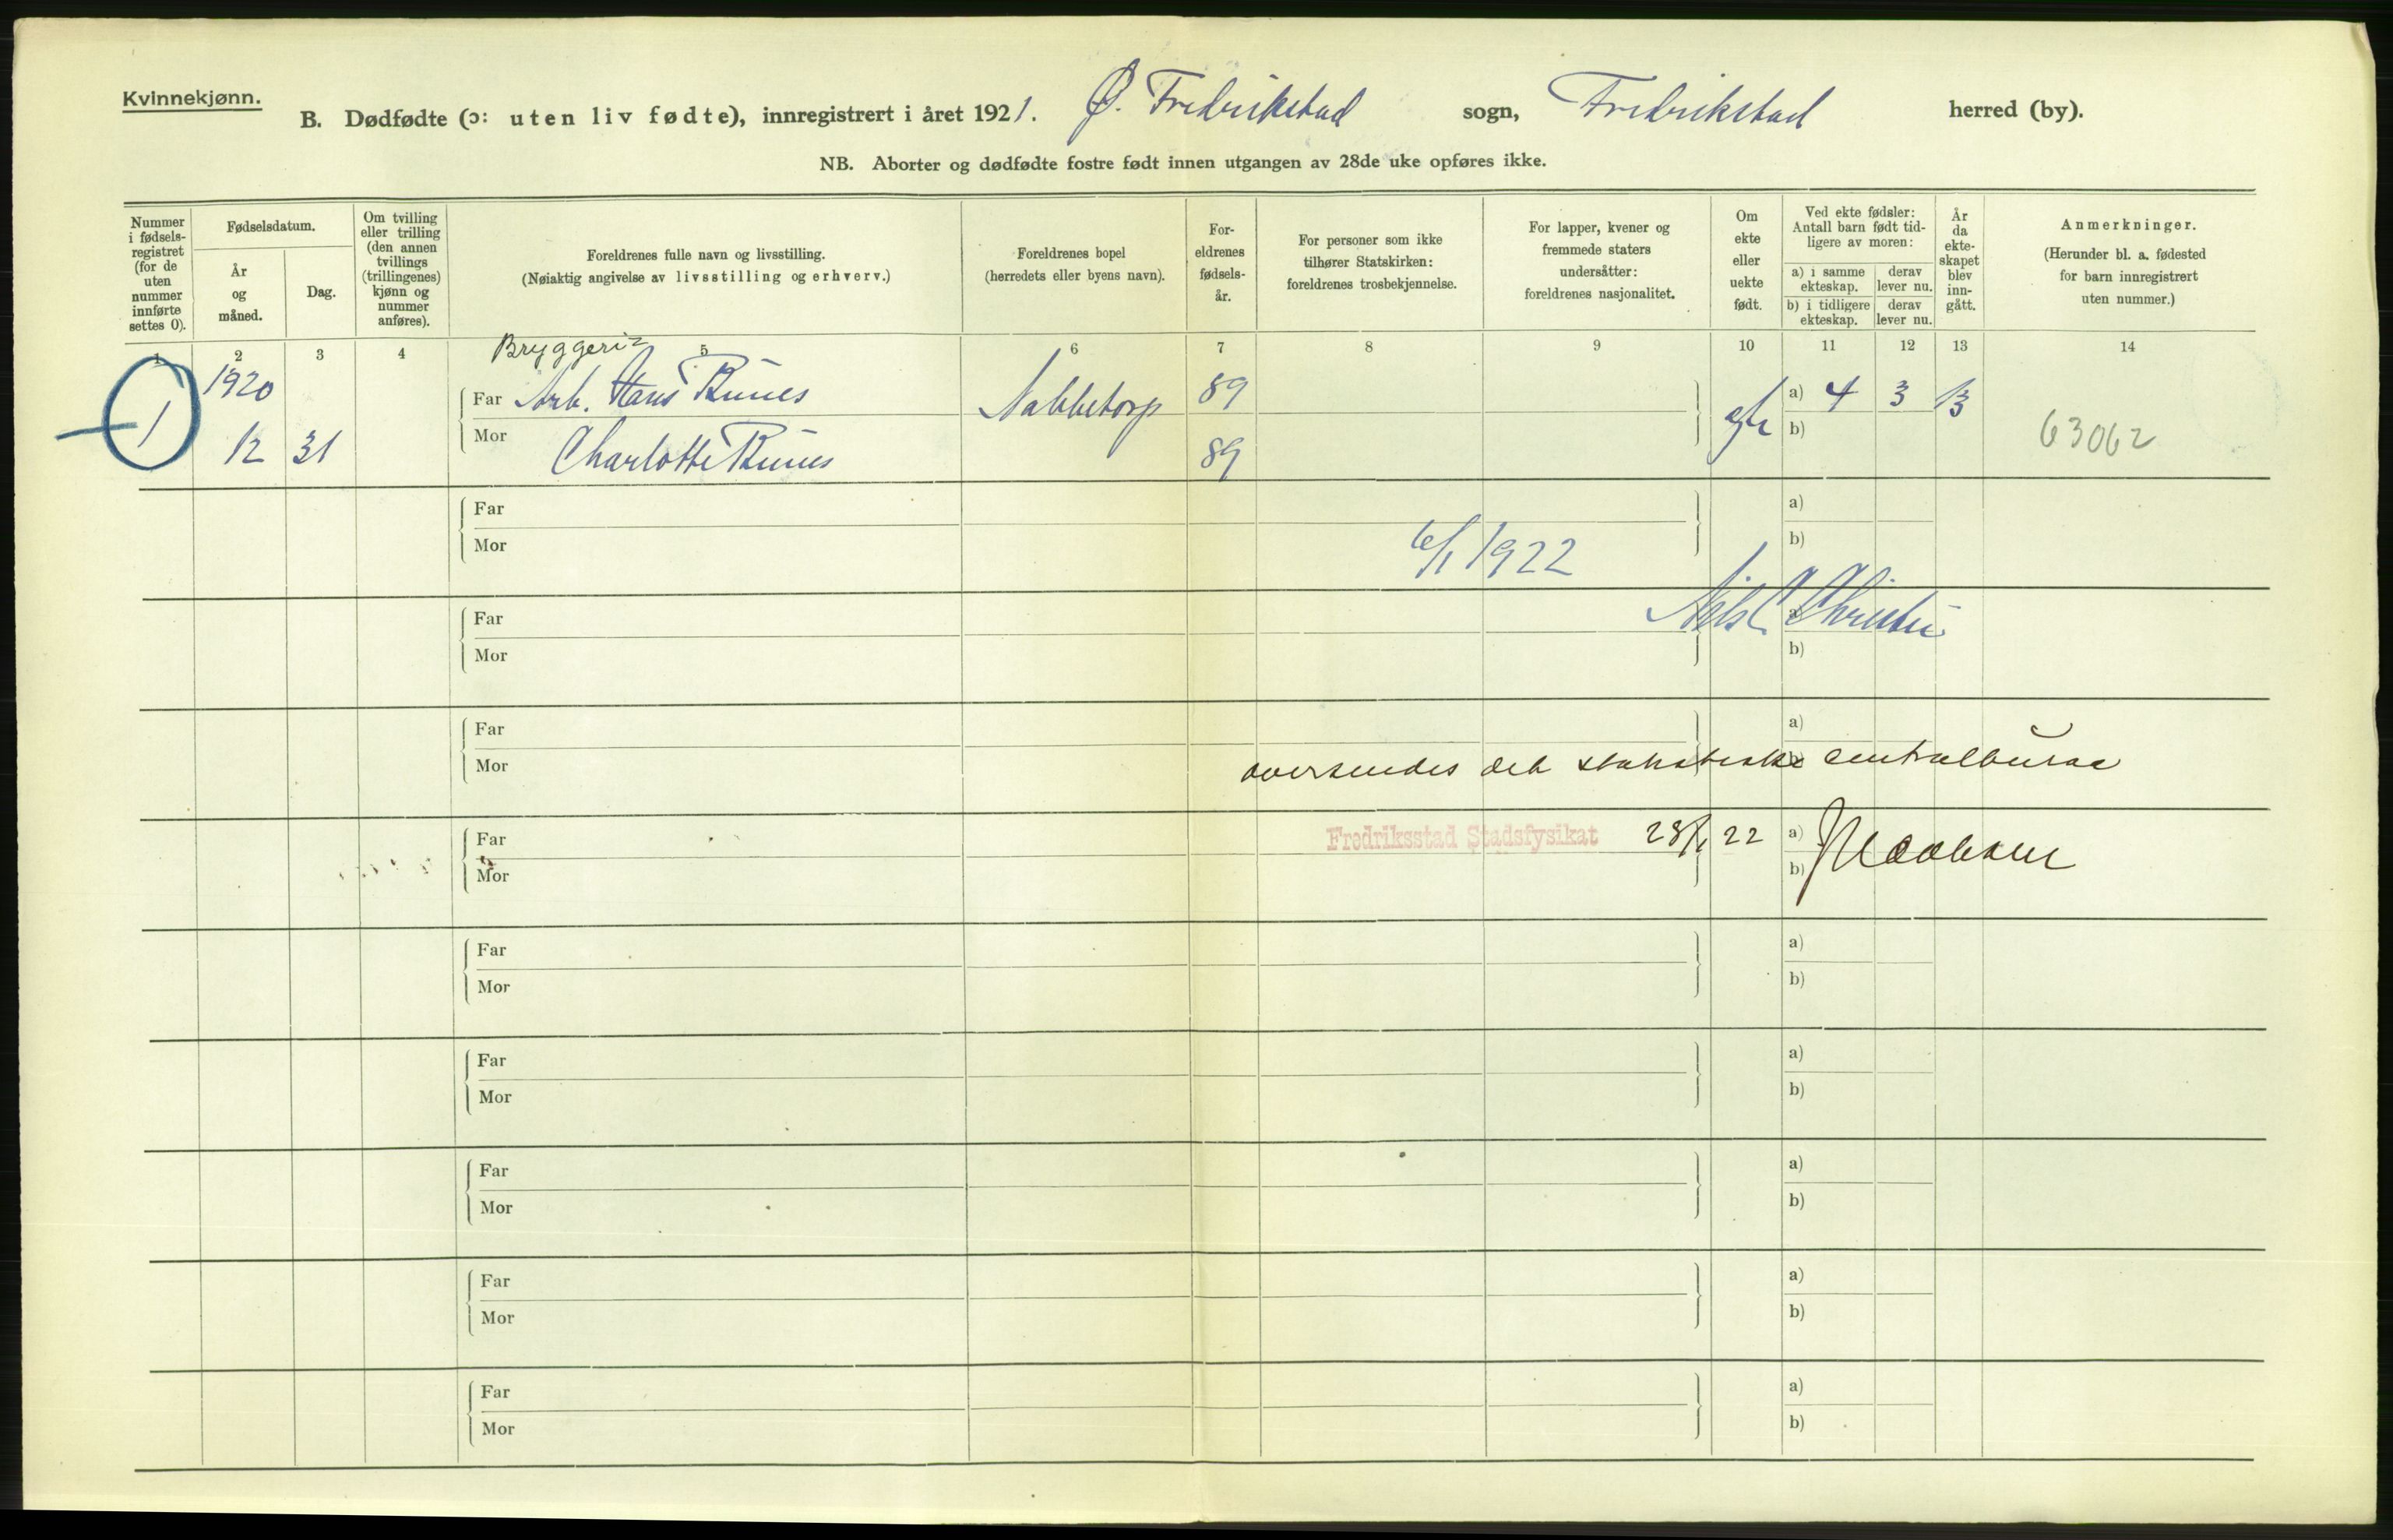 Kvinnekjønn.
B. Dødfødte (ɔ: uten liv fødte), innregistrert i året 1921. Ø. Fredrikstad sogn, Fredrikstad herred (by).
NB. Aborter og dødfødte fostre født innen utgangen av 28de uke opføres ikke.
Nummer i fødsels-registret (for de uten nummer innførte settes 0).
Fødselsdatum.
År og måned.
Dag.
Om tvilling eller trilling (den annen tvillings (trillingenes) kjønn og nummer anføres).
Foreldrenes fulle navn og livsstilling.
(Nøiaktig angivelse av livsstilling og erhverv.)
Foreldrenes bopel
(herredets eller byens navn).
For-eldrenes fødsels-år.
For personer som ikke tilhører Statskirken: foreldrenes trosbekjennelse.
For lapper, kvener og fremmede staters undersåtter: foreldrenes nasjonalitet.
Om ekte eller uekte født.
Ved ekte fødsler: Antall barn født tid-ligere av moren:
a) i samme ekteskap.
derav lever nu.
b) i tidligere ekteskap.
derav lever nu.
År da ekte-skapet blev inn-gått.
Anmerkninger.
(Herunder bl. a. fødested for barn innregistrert uten nummer.)
1 2 3 4 5 6 7 8 9 10 11 12 13 14
Bryggeri=
1 1920 12 31
Far Arb. Hans Bunes Nabbetorp 89 a) 4 3 13
Mor Charlotte Bunes 89 b)
63062
Far a)
Mor b)
6/1 1922
Nils C. Christie
Far a)
Mor b)
Far a)
Mor b)
oversendes det statistiske centralburaa
Far a)
Mor b)
Fredriksstad Stadsfysikat 28/1 22
Far a)
Mor b)
Far a)
Mor b)
Far a)
Mor b)
Far a)
Mor b)
Far a)
Mor b)